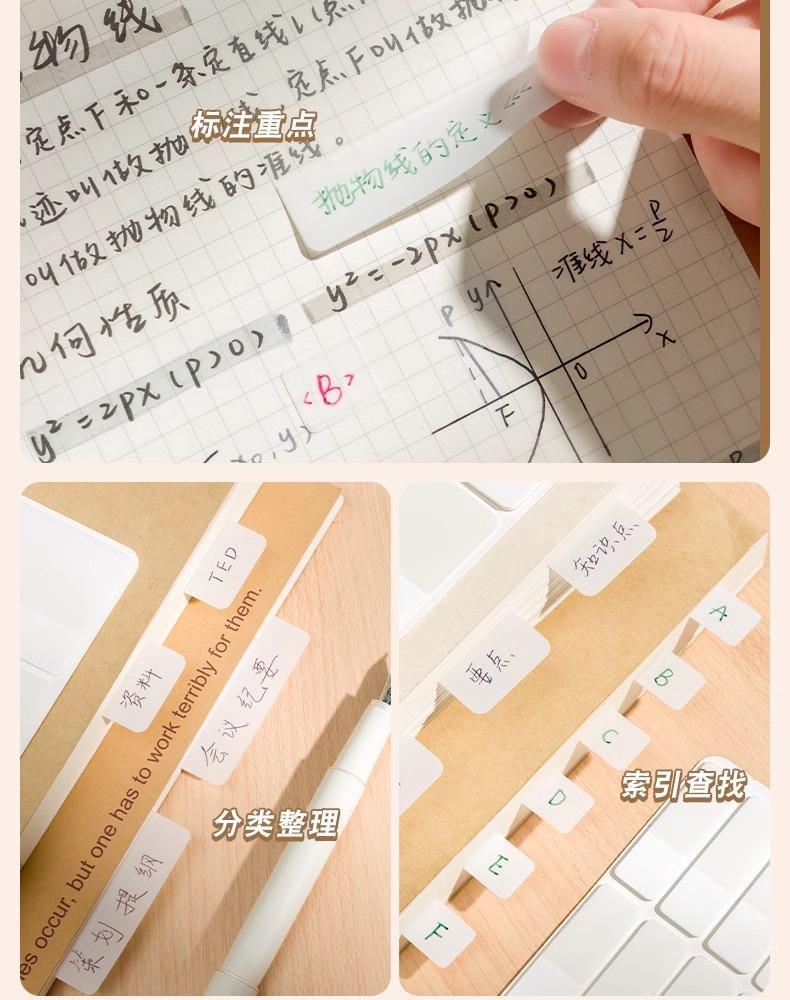 物线
定点F和一条定直线l(点
定点F叫做抛
迹叫做抛物线的准线。
叫做抛物线的准线。
标注重点
抛物线的定义<<<
几何性质
y²=-2px(p>0)
准线x=P/2
y²=2px(p>0)
<B>
P
y
x
O
F
x₀,y)
TED
资料
会议纪要
策划提纲
es occur, but one has to work terribly for them.
分类整理
知识点
要点
A
B
C
D
E
F
索引查找